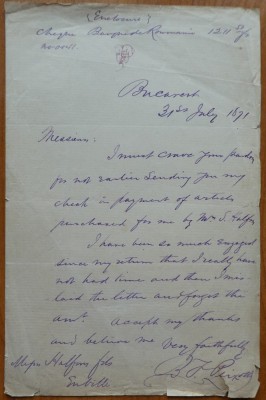 (Enclosure)
Bucarest
31st July 1871
Messieurs
I must crave your pardon
for not earlier sending you my
check in payment of articles
purchased for me by Mr S. Halfon
I have been so much engaged
since my return that I really have
not had time and then I mis-
laid the letter and forgot the
amt. Accept my thanks
and believe me Very faithfully
Messrs Halfon fils